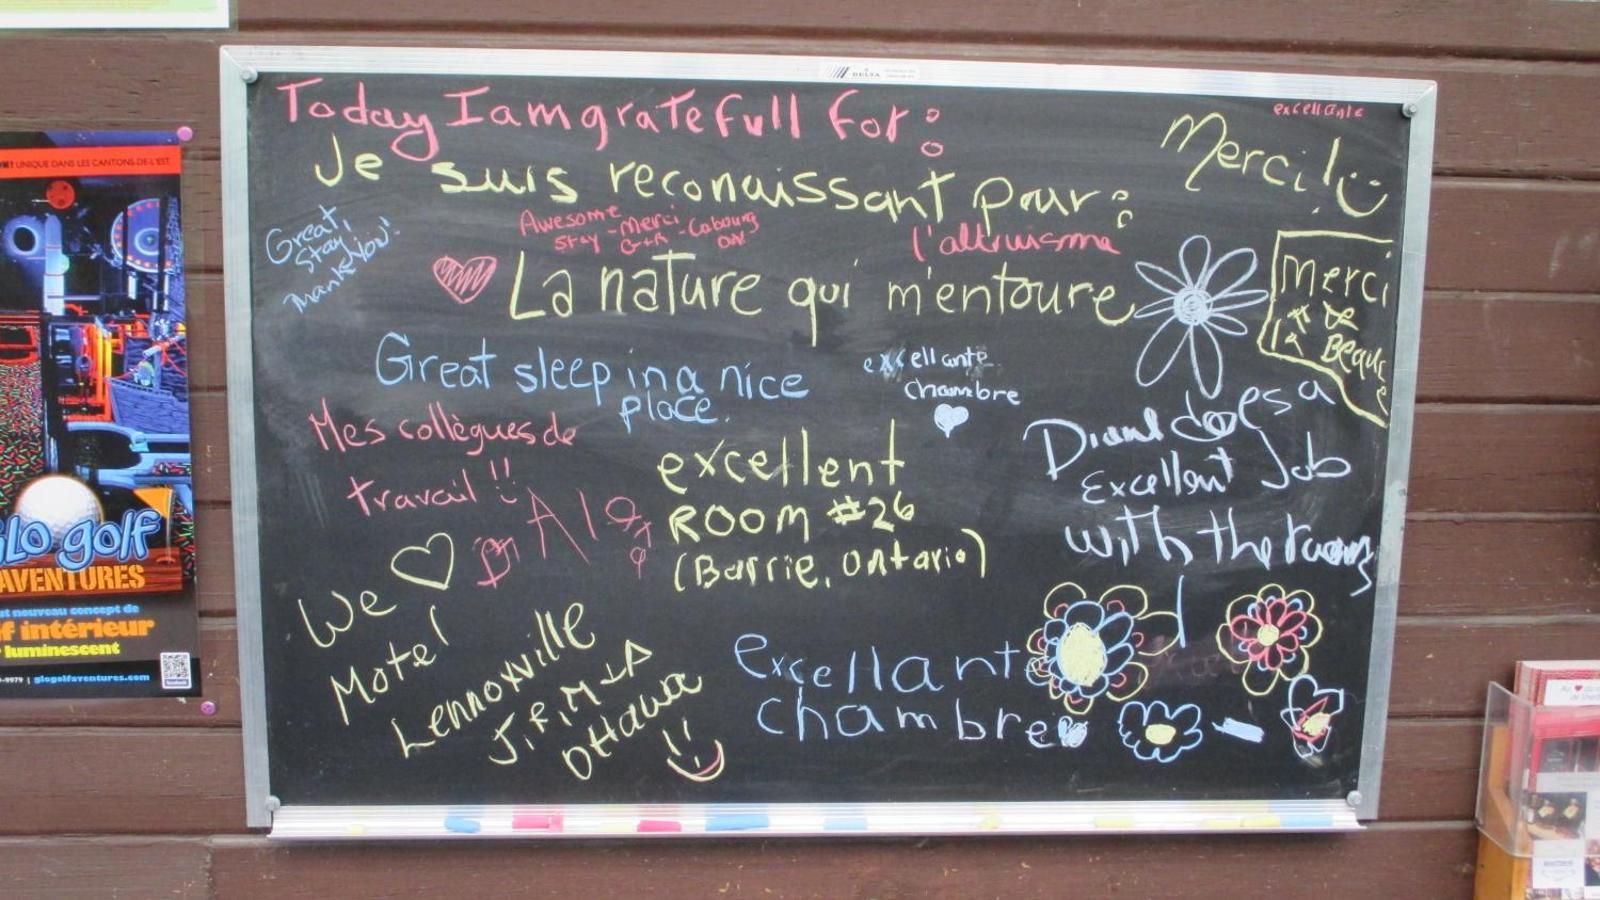 DELTA
Today I am gratefull for:
excellante
Merci!
Je suis reconaissant pour:
Great,
Stay
Thank you!
Awesome
Stay - Merci - Cobourg
G+R ON!
l'altruisme
La nature qui m'entoure
Merci
de
la Beauce
Great sleep in a nice
place.
excellante
chambre
Mes collègues de
travail!!
Diane does a
Excellent Job
with the rooms
excellent
ROOM #26
(Barrie, Ontario)
We
Motel
Lennoxville
Ottawa
excellant
chambre
UNIQUE DANS LES CANTONS-DE-L'EST
GLO golf
AVENTURES
nouveau concept de
f intérieur
luminescent
-9979 | glogolfaventures.com